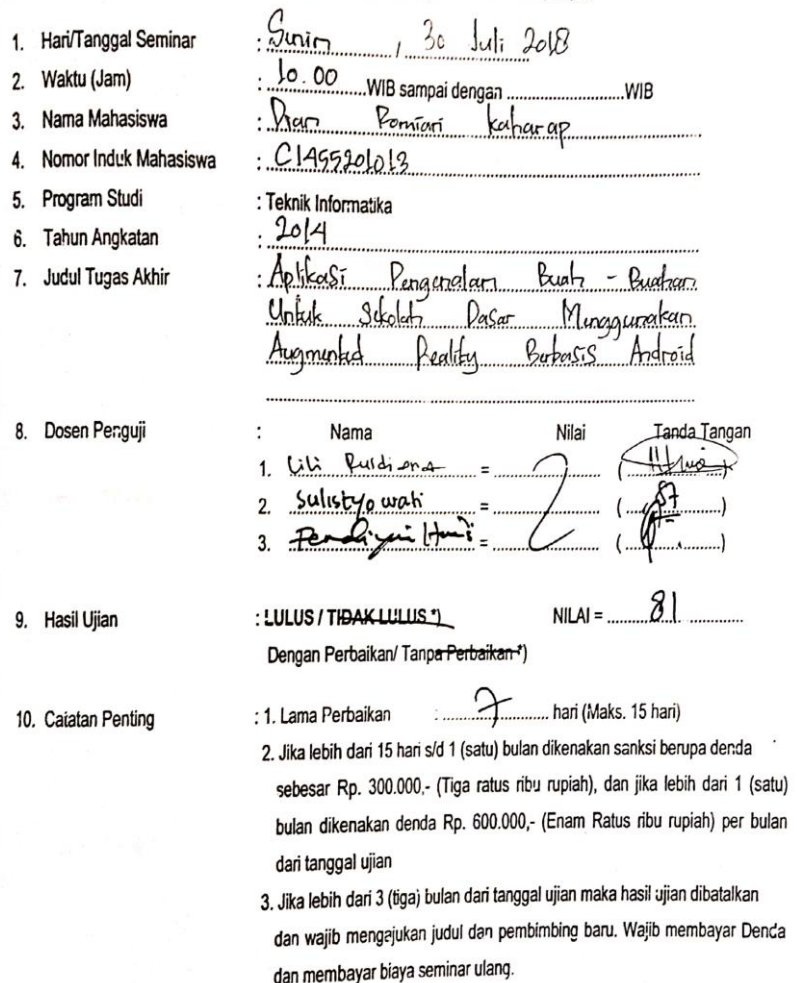 1. Hari/Tanggal Seminar : Senin, 30 Juli 2018
2. Waktu (Jam) : 10.00 WIB sampai dengan ........................WIB
3. Nama Mahasiswa : Dian Romiari Kaharap
4. Nomor Induk Mahasiswa : C1455201013
5. Program Studi : Teknik Informatika
6. Tahun Angkatan : 2014
7. Judul Tugas Akhir : Aplikasi Pengenalan Buah - Buahan
Untuk Sekolah Dasar Menggunakan
Augmented Reality Berbasis Android
8. Dosen Penguji : Nama Nilai Tanda Tangan
1. Lili Rusdiana = ........................ (
2. Sulistyowati = ........................ ( )
3. = ........................ ( )
9. Hasil Ujian : LULUS / TIDAK LULUS *) NILAI = 81
Dengan Perbaikan/ Tanpa Perbaikan *)
10. Catatan Penting : 1. Lama Perbaikan : 7 hari (Maks. 15 hari)
2. Jika lebih dari 15 hari s/d 1 (satu) bulan dikenakan sanksi berupa denda
sebesar Rp. 300.000,- (Tiga ratus ribu rupiah), dan jika lebih dari 1 (satu)
bulan dikenakan denda Rp. 600.000,- (Enam Ratus ribu rupiah) per bulan
dari tanggal ujian
3. Jika lebih dari 3 (tiga) bulan dari tanggal ujian maka hasil ujian dibatalkan
dan wajib mengajukan judul dan pembimbing baru. Wajib membayar Denda
dan membayar biaya seminar ulang.